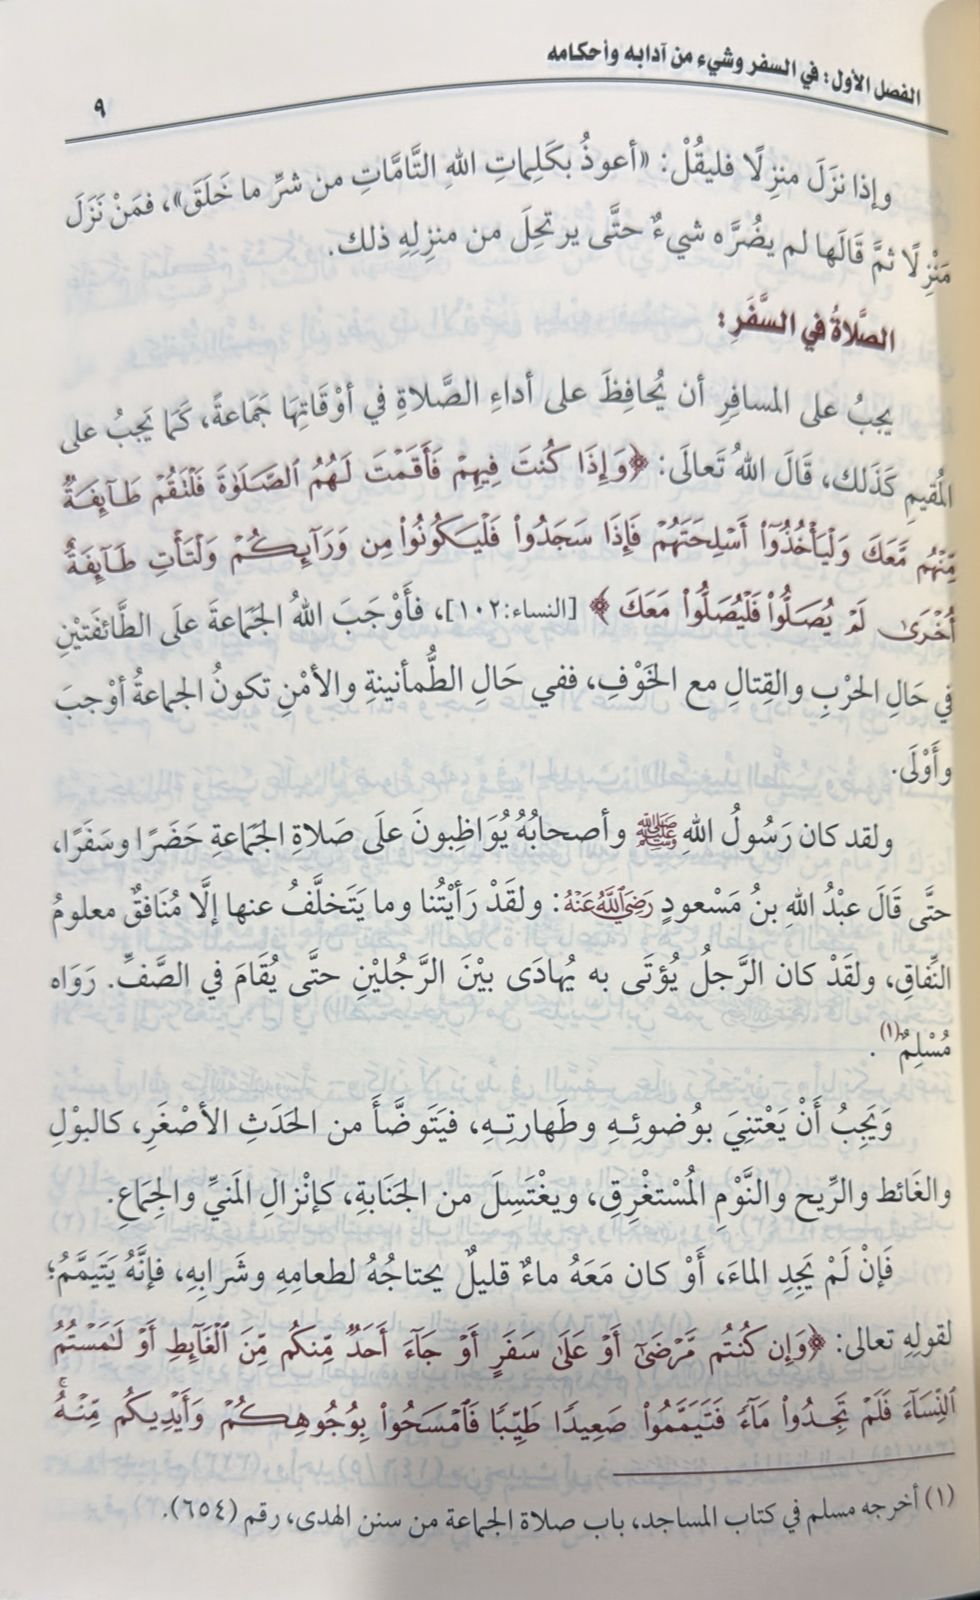 الفصل الأول: في السفر وشيء من آدابه وأحكامه
٩
وإذا نزَلَ منزِلًا فليقُلْ: «أعوذُ بكَلِماتِ اللهِ التَّامَّاتِ من شرِّ ما خَلَقَ»، فمَنْ نَزَلَ
مَنْزِلًا ثمَّ قَالَها لم يضُرَّه شيءٌ حتَّى يرتحِلَ من منزِلِهِ ذلك.
الصَّلاةُ في السَّفَرِ:
يجبُ على المسافِرِ أن يُحافِظَ على أداءِ الصَّلاةِ في أوْقَاتِهَا جَمَاعةً، كَمَا يَجبُ على
المُقيمِ كَذَلك، قَالَ اللهُ تَعالَى: ﴿وَإِذَا كُنتَ فِيهِمْ فَأَقَمْتَ لَهُمُ ٱلصَّلَوٰةَ فَلْتَقُمْ طَآئِفَةٌ
مِّنْهُم مَّعَكَ وَلْيَأْخُذُوٓا۟ أَسْلِحَتَهُمْ فَإِذَا سَجَدُوا۟ فَلْيَكُونُوا۟ مِن وَرَآئِكُمْ وَلْتَأْتِ طَآئِفَةٌ
أُخْرَىٰ لَمْ يُصَلُّوا۟ فَلْيُصَلُّوا۟ مَعَكَ﴾ [النساء:١٠٢]، فأَوْجَبَ اللهُ الجَماعةَ علَى الطَّائفَتيْنِ
في حَالِ الحرْبِ والقِتالِ مع الخَوْفِ، ففي حَالِ الطُّمأنينةِ والأمْنِ تكونُ الجماعةُ أوْجبَ
وأَوْلَى.
ولقد كان رَسُولُ اللهِ ﷺ وأصحابُهُ يُوَاظِبونَ علَى صَلاةِ الجَماعةِ حَضَرًا وسَفَرًا،
حتَّى قَالَ عبْدُ اللهِ بنُ مَسْعودٍ رَضِيَ ٱللَّهُ عَنْهُ: ولقَدْ رَأيْتُنا وما يَتَخلَّفُ عنها إلَّا مُنَافقٌ معلومُ
النِّفاقِ، ولقَدْ كان الرَّجلُ يُؤتَى به يُهادَى بيْنَ الرَّجُليْنِ حتَّى يُقَامَ في الصَّفِّ. رَوَاه
مُسْلِمٌ(١).
وَيَجِبُ أَنْ يَعْتنِيَ بوُضوئِـهِ وطَهارتِـهِ، فيَتَوضَّأَ من الحَدَثِ الأصْغَرِ، كالبوْلِ
والغَائط والرِّيح والنَّوْمِ المُسْتغْرِقِ، ويغْتَسِلَ من الجَنَابةِ، كإنْزالِ المَنيِّ والجِمَاعِ.
فَإنْ لَمْ يَجِدِ الماءَ، أَوْ كان مَعَهُ ماءٌ قليلٌ يحتاجُهُ لطعامِهِ وشَرابِهِ، فإنَّهُ يَتَيمَّمُ؛
لقولِهِ تعالى: ﴿وَإِن كُنتُم مَّرْضَىٰٓ أَوْ عَلَىٰ سَفَرٍ أَوْ جَآءَ أَحَدٌ مِّنكُم مِّنَ ٱلْغَآئِطِ أَوْ لَـٰمَسْتُمُ
ٱلنِّسَآءَ فَلَمْ تَجِدُوا۟ مَآءً فَتَيَمَّمُوا۟ صَعِيدًا طَيِّبًا فَٱمْسَحُوا۟ بِوُجُوهِكُمْ وَأَيْدِيكُم مِّنْهُ ۚ
(١) أخرجه مسلم في كتاب المساجد، باب صلاة الجماعة من سنن الهدى، رقم (٦٥٤).